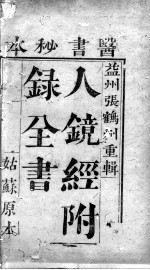 醫書秘本
益州張鶴洲重輯
人鏡經附
録全書
姑蘇原本